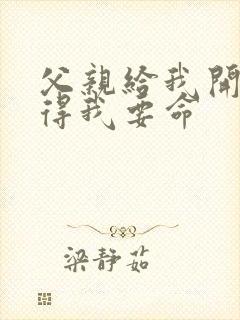 父親給我開
得我要命
梁靜茹